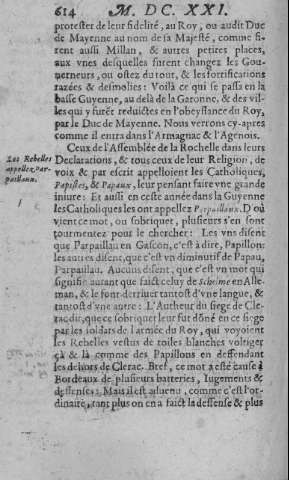 614 M. DC. XXI.
protester de leur fidelité, au Roy, ou audit Duc
de Mayenne au nom de sa Majesté, comme fi-
rent aussi Millan, & autres petites places,
aux vnes desquelles furent changez les Gou-
uerneurs, ou ostez du tout, & les fortifications
razées & desmolies: Voilà ce qui se passa en la
basse Guyenne, au delà de la Garonne, & des vil-
les qui y furẽt reduictes en l'obeyssance du Roy,
par le Duc de Mayenne. Nous verrons cy-apres
comme il entra dans l'Armagnac & l'Agenois.
Ceux de l'Assemblée de la Rochelle dans leurs
Les Rebelles
appellez Par-
paillaux.
Declarations, & tous ceux de leur Religion, de
voix & par escrit appelloient les Catholiques,
Papistes, & Papaux, leur pensant faire vne grande
iniure: Et aussi en ceste année dans la Guyenne
les Catholiques les ont appellez Parpaillaux. D'où
vient ce mot, ou sobriquet, plusieurs s'en sont
tourmentez pour le chercher: Les vns disent
que Parpaillau en Gascon, c'est à dire, Papillon:
les autres disent, que c'est vn diminutif de Papau,
Parpaillau. Aucuns disent, que c'est vn mot qui
signifie autant que faict celuy de Schelme en Alle-
man, & le font deriuer tantost d'vne langue, &
tantost d'vne autre: L'Autheur du siege de Cle-
rac dit, que ce sobriquet leur fut dõné en ce siege
par les soldats de l'armée du Roy, qui voyoient
les Rebelles vestus de toiles blanches voltiger
çà & là comme des Papillons en deffendant
les dehors de Clerac. Bref, ce mot a esté cause à
Bordeaux de plusieurs batteries, Iugements &
deffenses: Mais il est aduenu, comme c'est l'or-
dinaire, tant plus on en a faict la deffense & plus